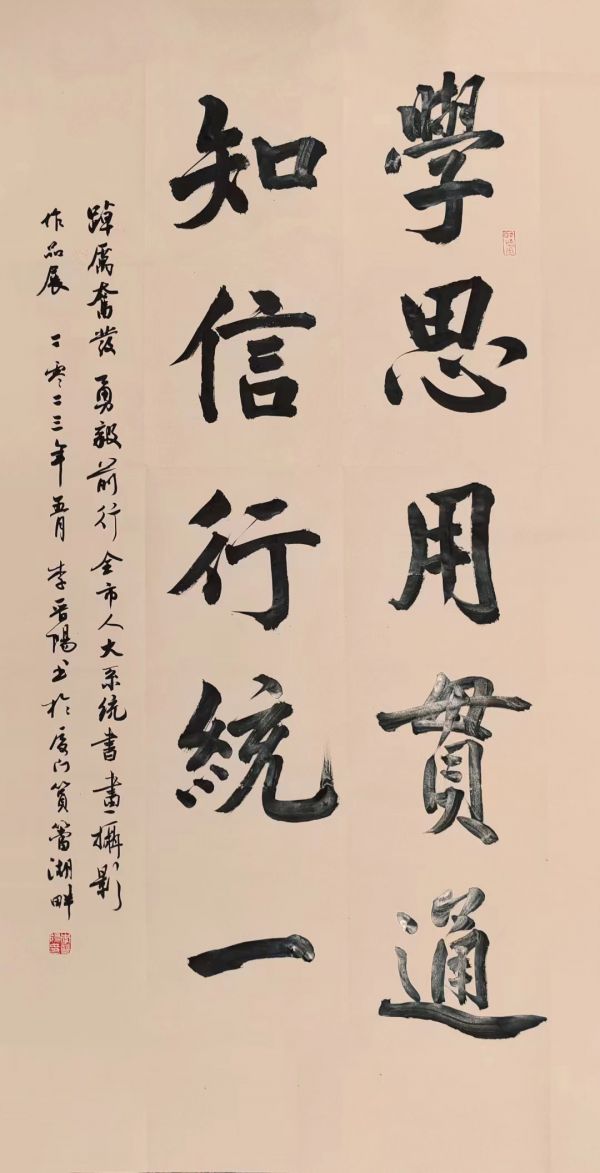 學思用貫通
知信行統一
踔厲奮發勇毅前行全市人大系統書畫攝影
作品展 二零二三年五月 李晋陽书於厦门筼簹湖畔